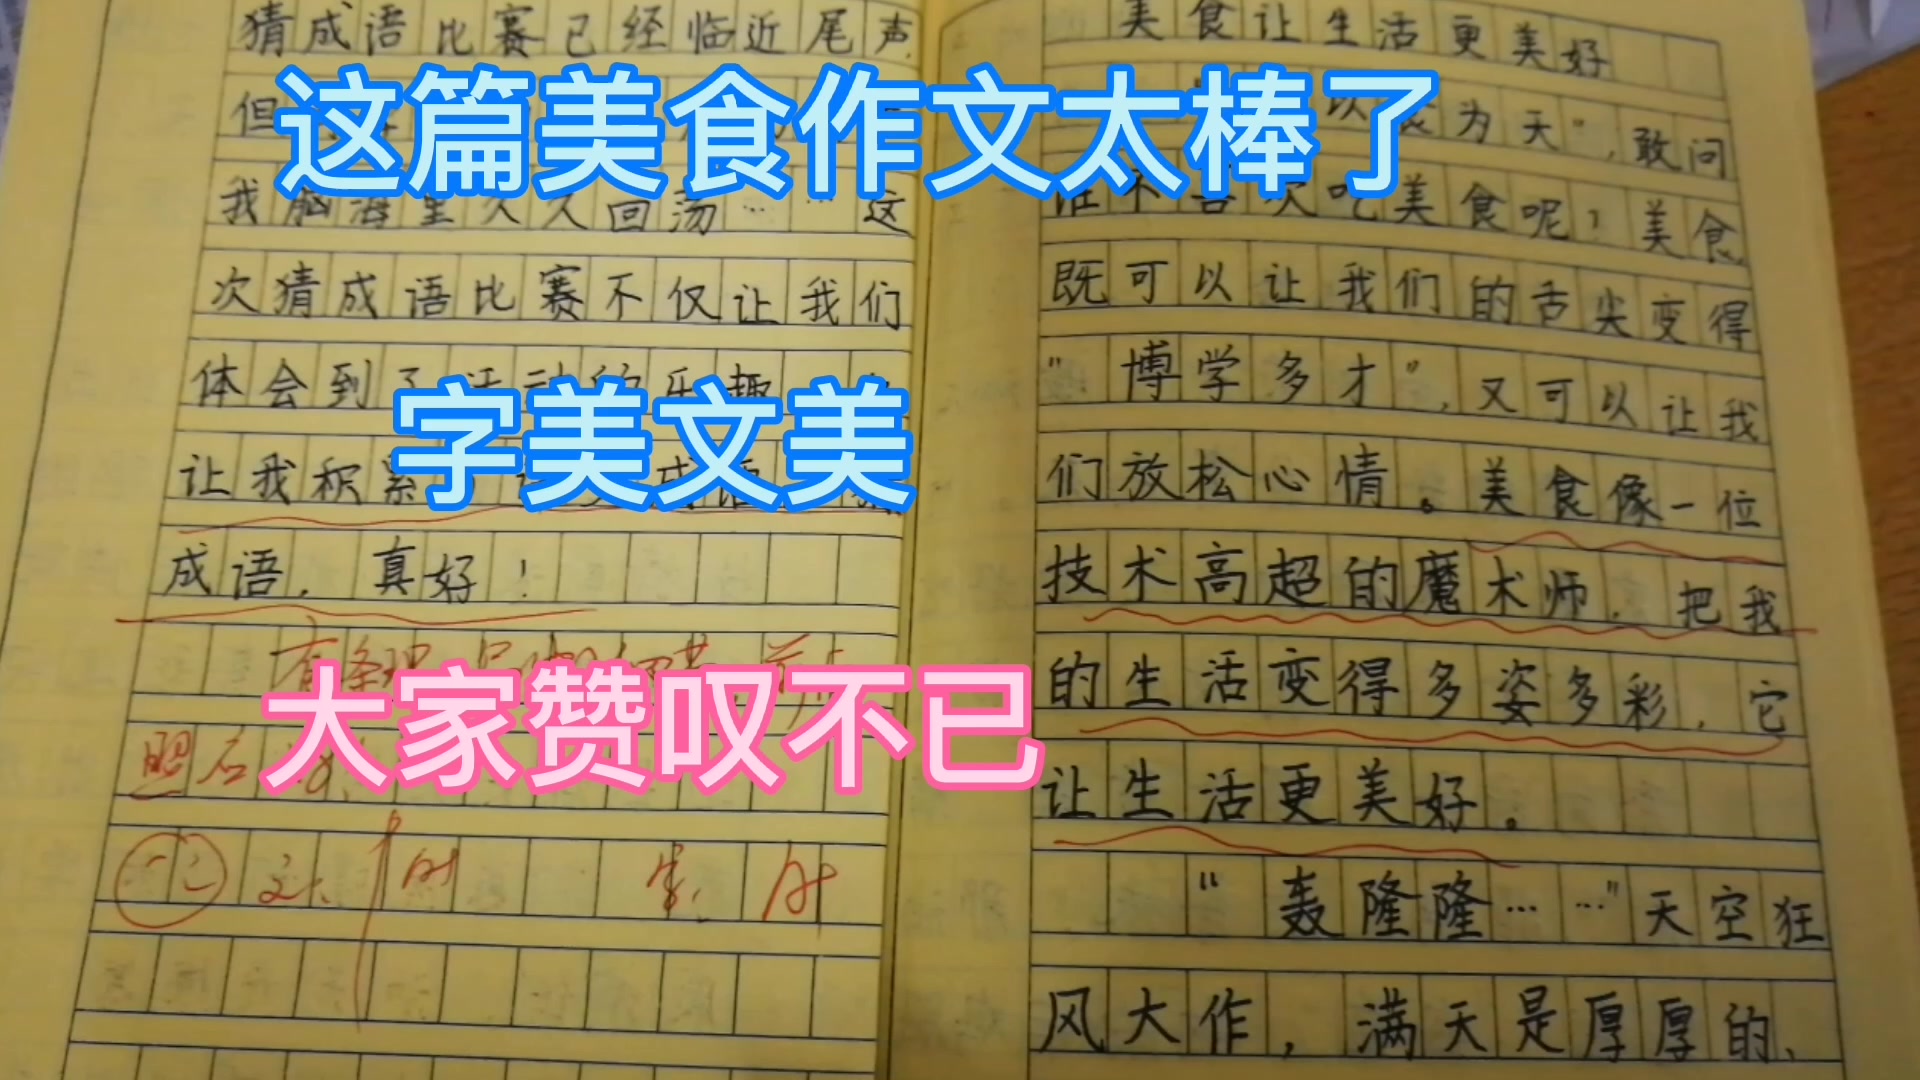 猜成语比赛已经临近尾声,
但
我脑海里久久回荡……这
次猜成语比赛不仅让我们
体会到了活动的乐趣
让我积累 成语
成语,真好!
有条理
照后
文 时
美食让生活更美好
以食为天",敢问
谁不喜欢吃美食呢?美食
既可以让我们的舌尖变得
"博学多才",又可以让我
们放松心情。美食像一位
技术高超的魔术师,把我
的生活变得多姿多彩,它
让生活更美好。
"轰隆隆……"天空狂
风大作,满天是厚厚的、
这篇美食作文太棒了
字美文美
大家赞叹不已